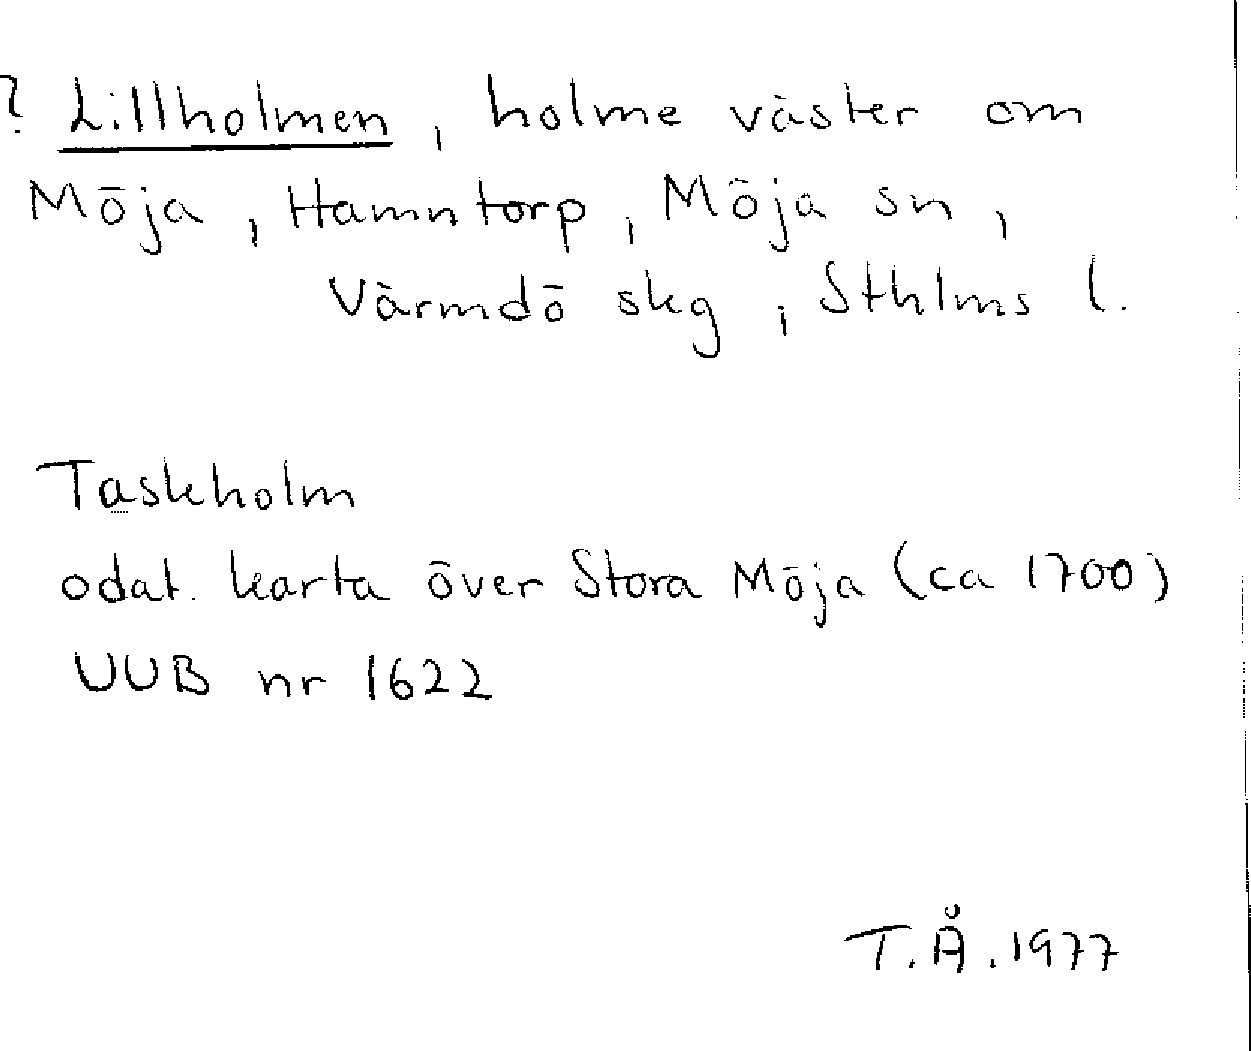 ? Lillholmen, holme väster om
Möja, Hamntorp, Möja sn,
Värmdö skg, Sthlms l.
Taskholm
odat. karta över Stora Möja (ca 1700)
UUB nr 1622
T.Å. 1977